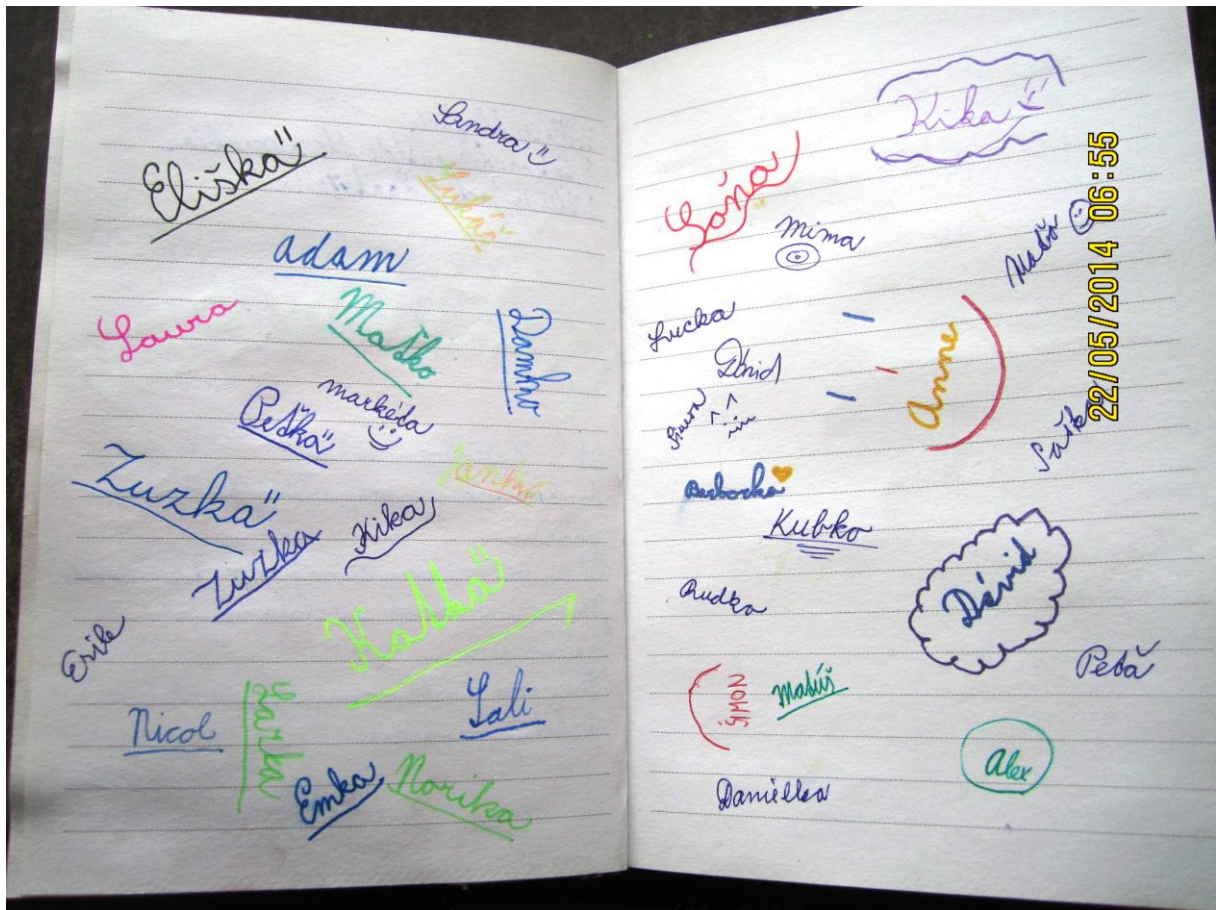 Sandra
Eliška
Lukáš
adam
Laura
Maťko
Damko
Peťka
markéta
Zuzka
Kika
Zuzka
Katka
Erik
Nicol
Sali
Emka
Norika
Kika
Soňa
mima
Lucka
Dávid
Anne
Barborka
Kubko
Dávid
Rudka
Peťa
ŠIMON
Matúš
Alex
Danielka
22/05/2014 06:55